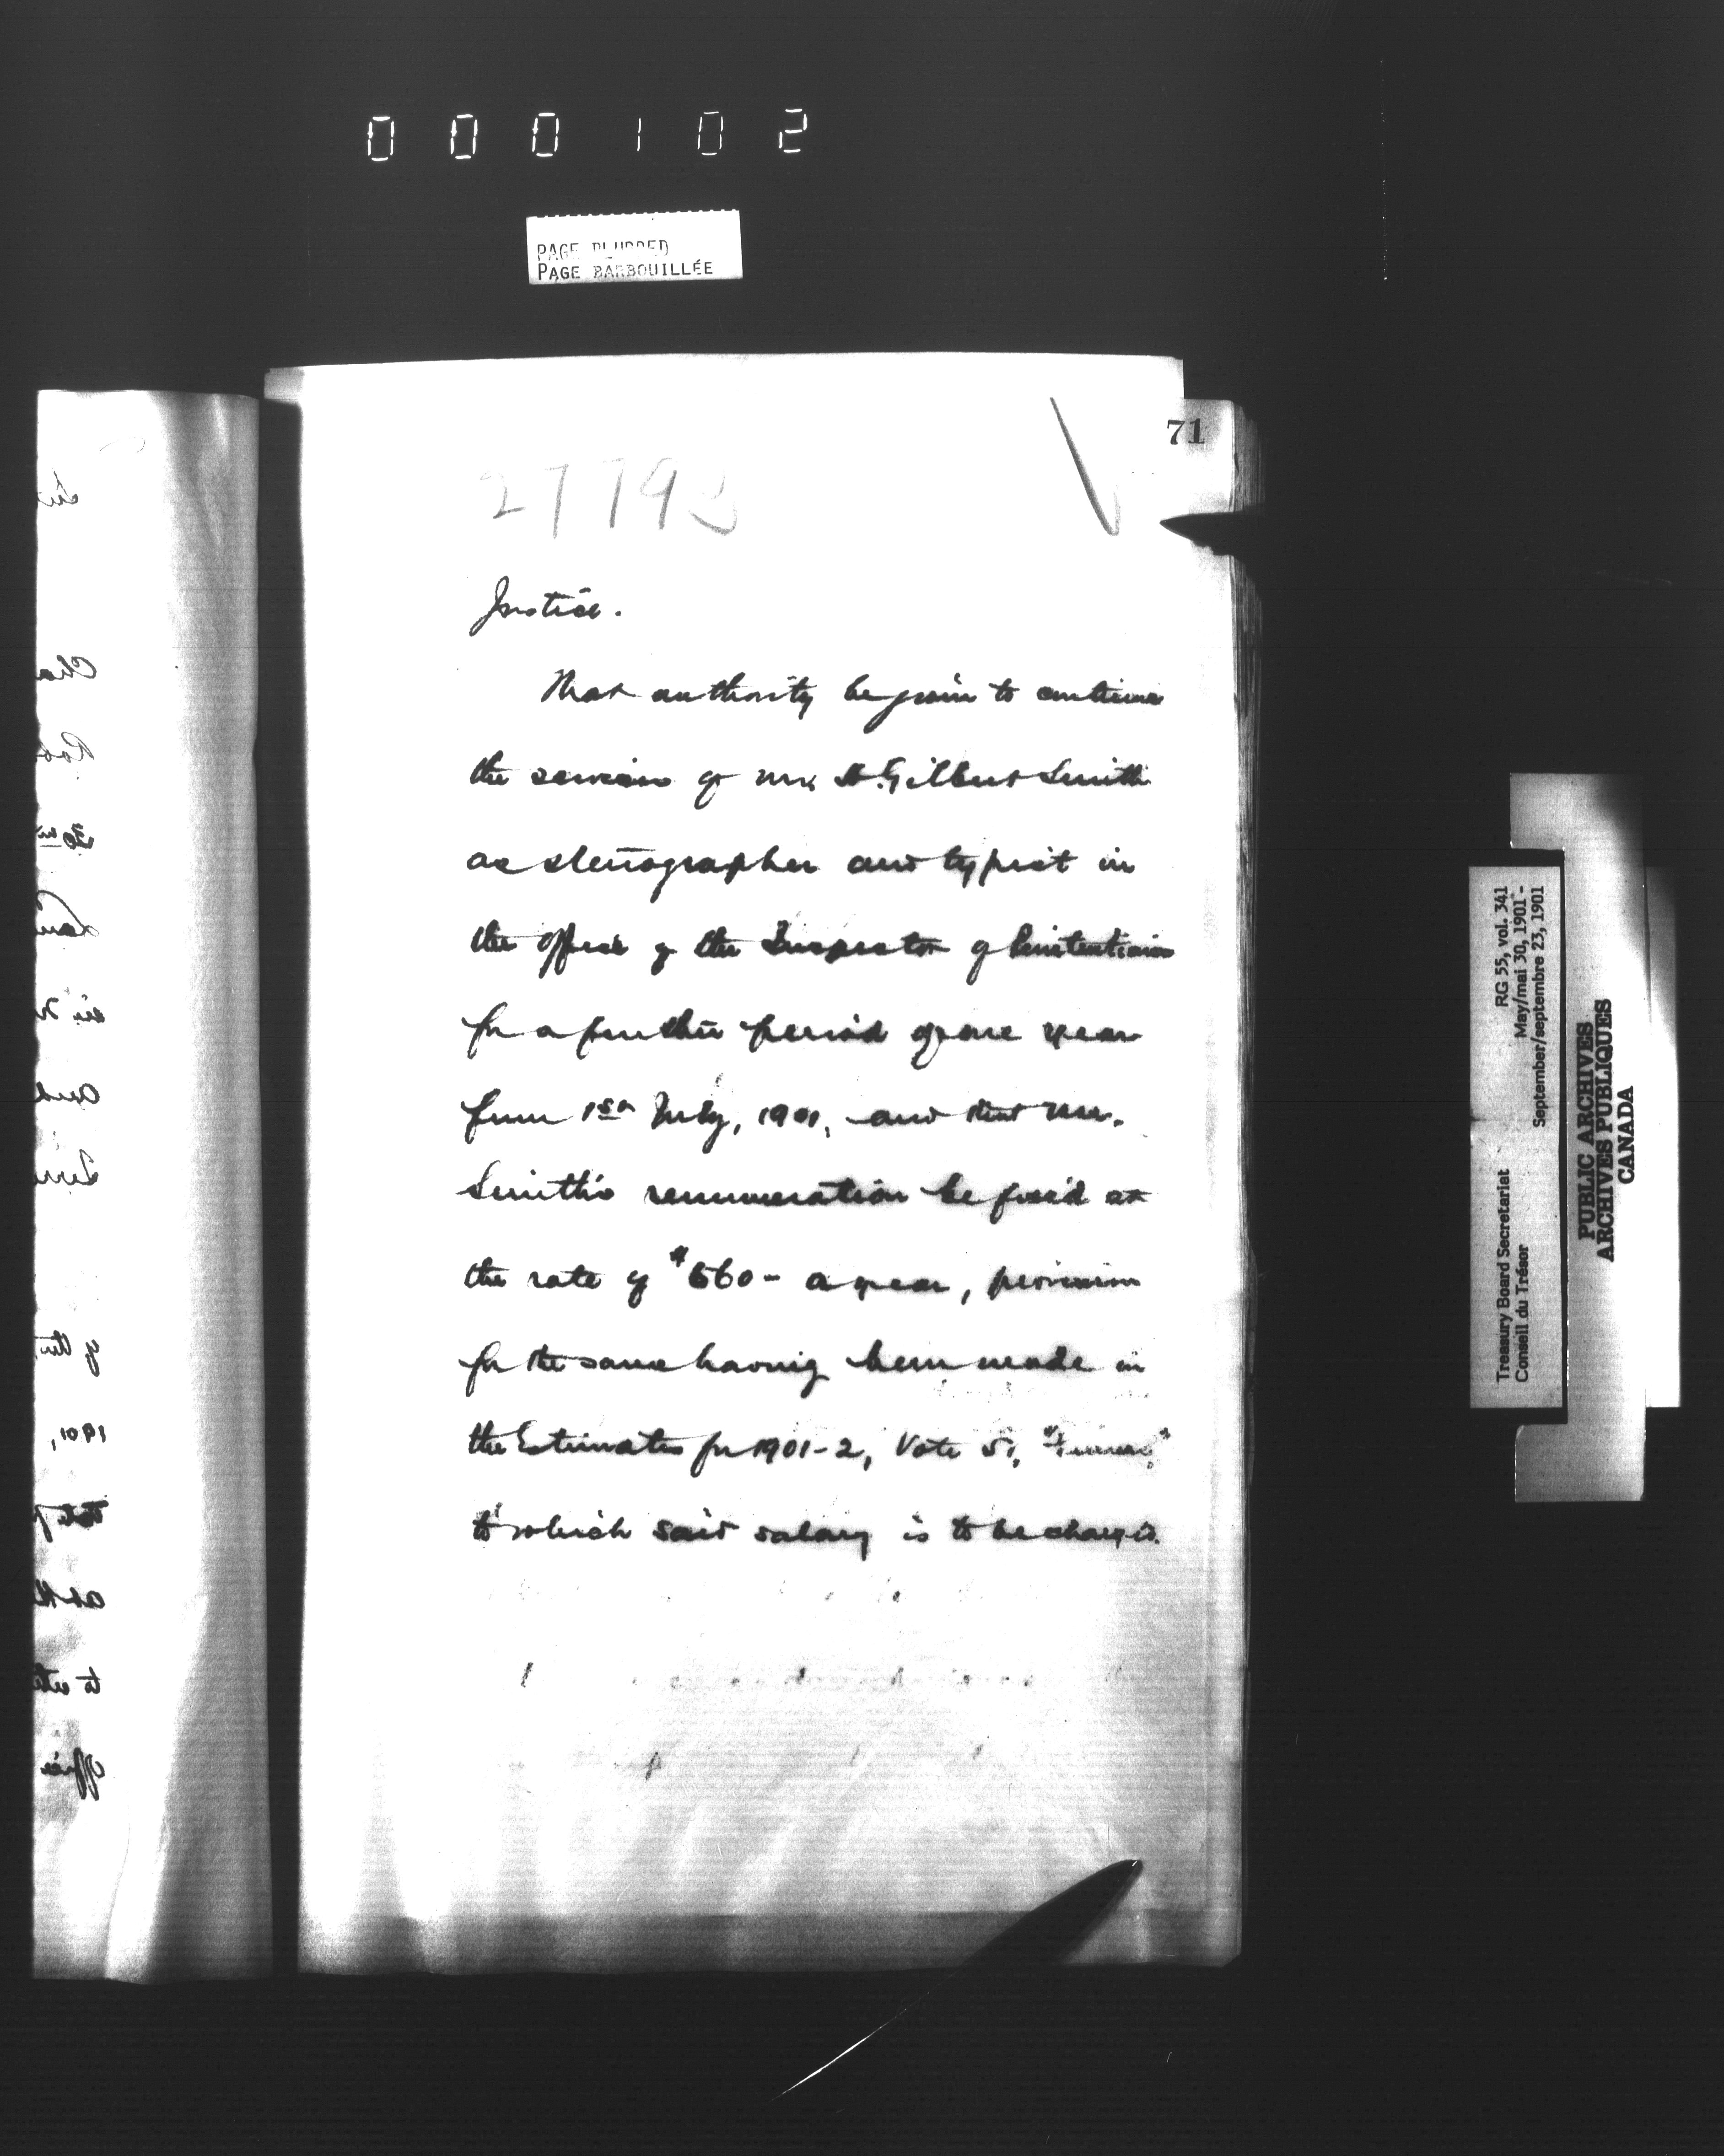 000102
PAGE BLURRED
PAGE BARBOUILLÉE
71
27793
Justice.
That authority be given to continue
the services of Mr. H. Gilbert Smith
as stenographer and typist in
the office of the Inspector of Penitentiaries
for a further period of one year
from 1st July, 1901, and that Mr.
Smith's remuneration be fixed at
the rate of $660- a year, provision
for the same having been made in
the Estimates for 1901-2, Vote 5,
to which said salary is to be charged.
Treasury Board Secretariat RG 55, vol. 341
Conseil du Trésor May/mai 30, 1901 -
September/septembre 23, 1901
PUBLIC ARCHIVES
ARCHIVES PUBLIQUES
CANADA
1901,
office